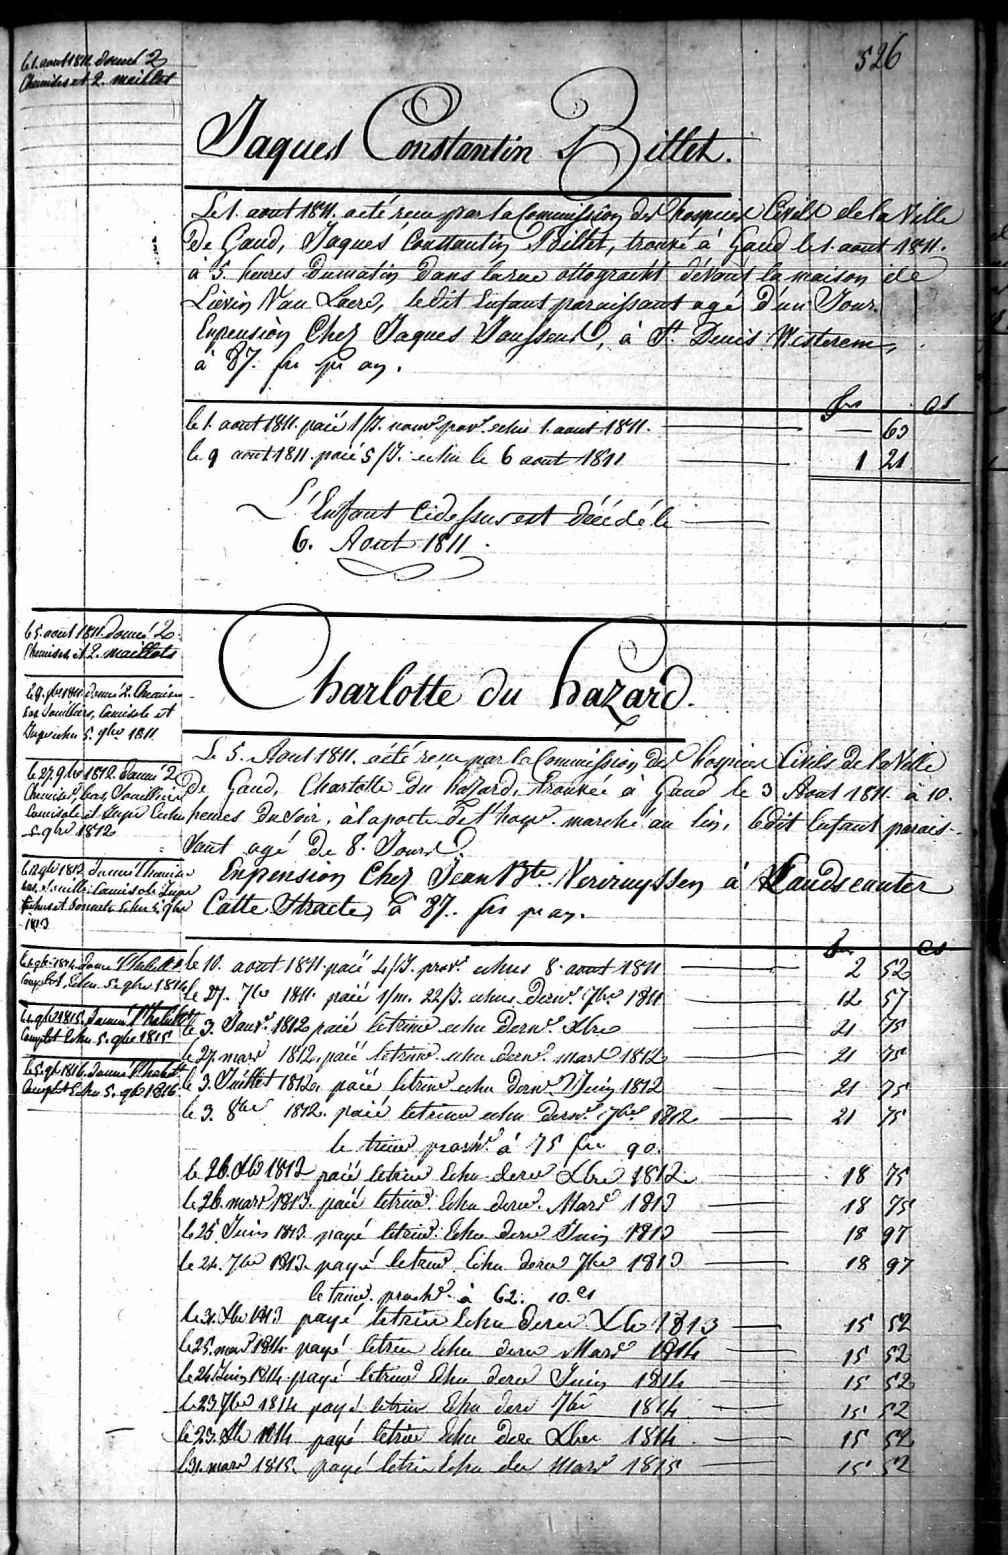 526
le 1. aout 1811. donné 2
Chemises et 2. maillots
Jaques Constantin Billet.
Le 1. aout 1811. a été reçu par la Commission des hospices Civils de la Ville
de Gand, Jaques Constantin Billet, trouvé à Gand le 1. aout 1811.
à 5. heures du matin dans la rue ottogracht dévant la maison de
Liévin Van Laere, ledit Enfant paraissant agé d'un Jour.
Enpension Chez Jaques Janssens, à St. Denis Westerem,
à 87. frs pr an.
frs cs
le 1. aout 1811. paié 1/J. nourr. prov. echu 1. aout 1811. — 63
le 9 aout 1811. paié 5/J. echu le 6 aout 1811 1 21
L'Enfant Cidessus est décédé le
6. Aout 1811.
le 5. aout 1811. donné 2
Chemises et 2. maillots
le 9. gbre 1811 donné 2. Chemises
bas Souilliers, Camisole et
Jupe echu 5. gbre 1811
le 27. gbre 1812. donné 2
Chemises, bas, Souilliers
Camisole et Jupe Echu
5. gbre 1812
1813
Complet, Echu 5. gbre 1814
le gbre 1815. donné l'habillt
Complet Echu 5. gbre 1815
le 5. gb 1816. donné l'habillt
Complet Echu 5. gbre 1816
Charlotte du hazard.
Le 5. Aout 1811. a été reçu par la Commission des hospices Civils de la Ville
de Gand, Charlotte du hazard, trouvée à Gand le 3 Aout 1811. à 10.
heures du soir, à la porte de l'hosp. marché au lin, ledit Enfant parais-
sant agé de 8. Jours.
Enpension Chez Jean Bte. Vervruyssen à Landscauter
Catte Straete, à 87. frs pr an.
frs cs
le 10. aout 1811 paié 4/J. prov. echus 8. aout 1811 2 52
le 27. 7bre 1811. paié 1/m. 22/J. echus Dern. 7bre 1811 12 57
le 3. Janv. 1812 paié letrim echu Dern. Xbre 21 75
le 27. mars 1812. paié letrim. echu dern. mars 1812 21 75
le 3. Juillet 1812 paié letrim echu dern. Juin 1812 21 75
le 3. 8bre 1812. paié letrim echu dern. 7bre 1812 21 75
le trim proch. à 75 frs 90.
le 26. Xb 1812 paié letrim Echu dern Xbre 1812 18 75
le 26. mars 1813. paié letrim. Echu dern. Mars 1813 18 75
le 25. Juin 1813. payé letrim. Echu dern Juin 1813 18 97
le 24. 7bre 1813. payé letrim. Echu dern 7bre 1813 18 97
le trim. proch. à 62. 10.cs
le 31. Xb 1813 payé letrim Echu dern Xb 1813 15 52
le 25. mars 1814. payé letrim Echu dern Mars 1814 15 52
le 24. Juin 1814. payé letrim Echu dern Juin 1814 15 52
le 23. 7bre 1814 payé letrim Echu dern 7bre 1814 15 52
le 23. Xb 1814 payé letrim Echu dern Xbre 1814 15 52
le 31. mars 1815. payé letrim Echu der Mars 1815 15 52